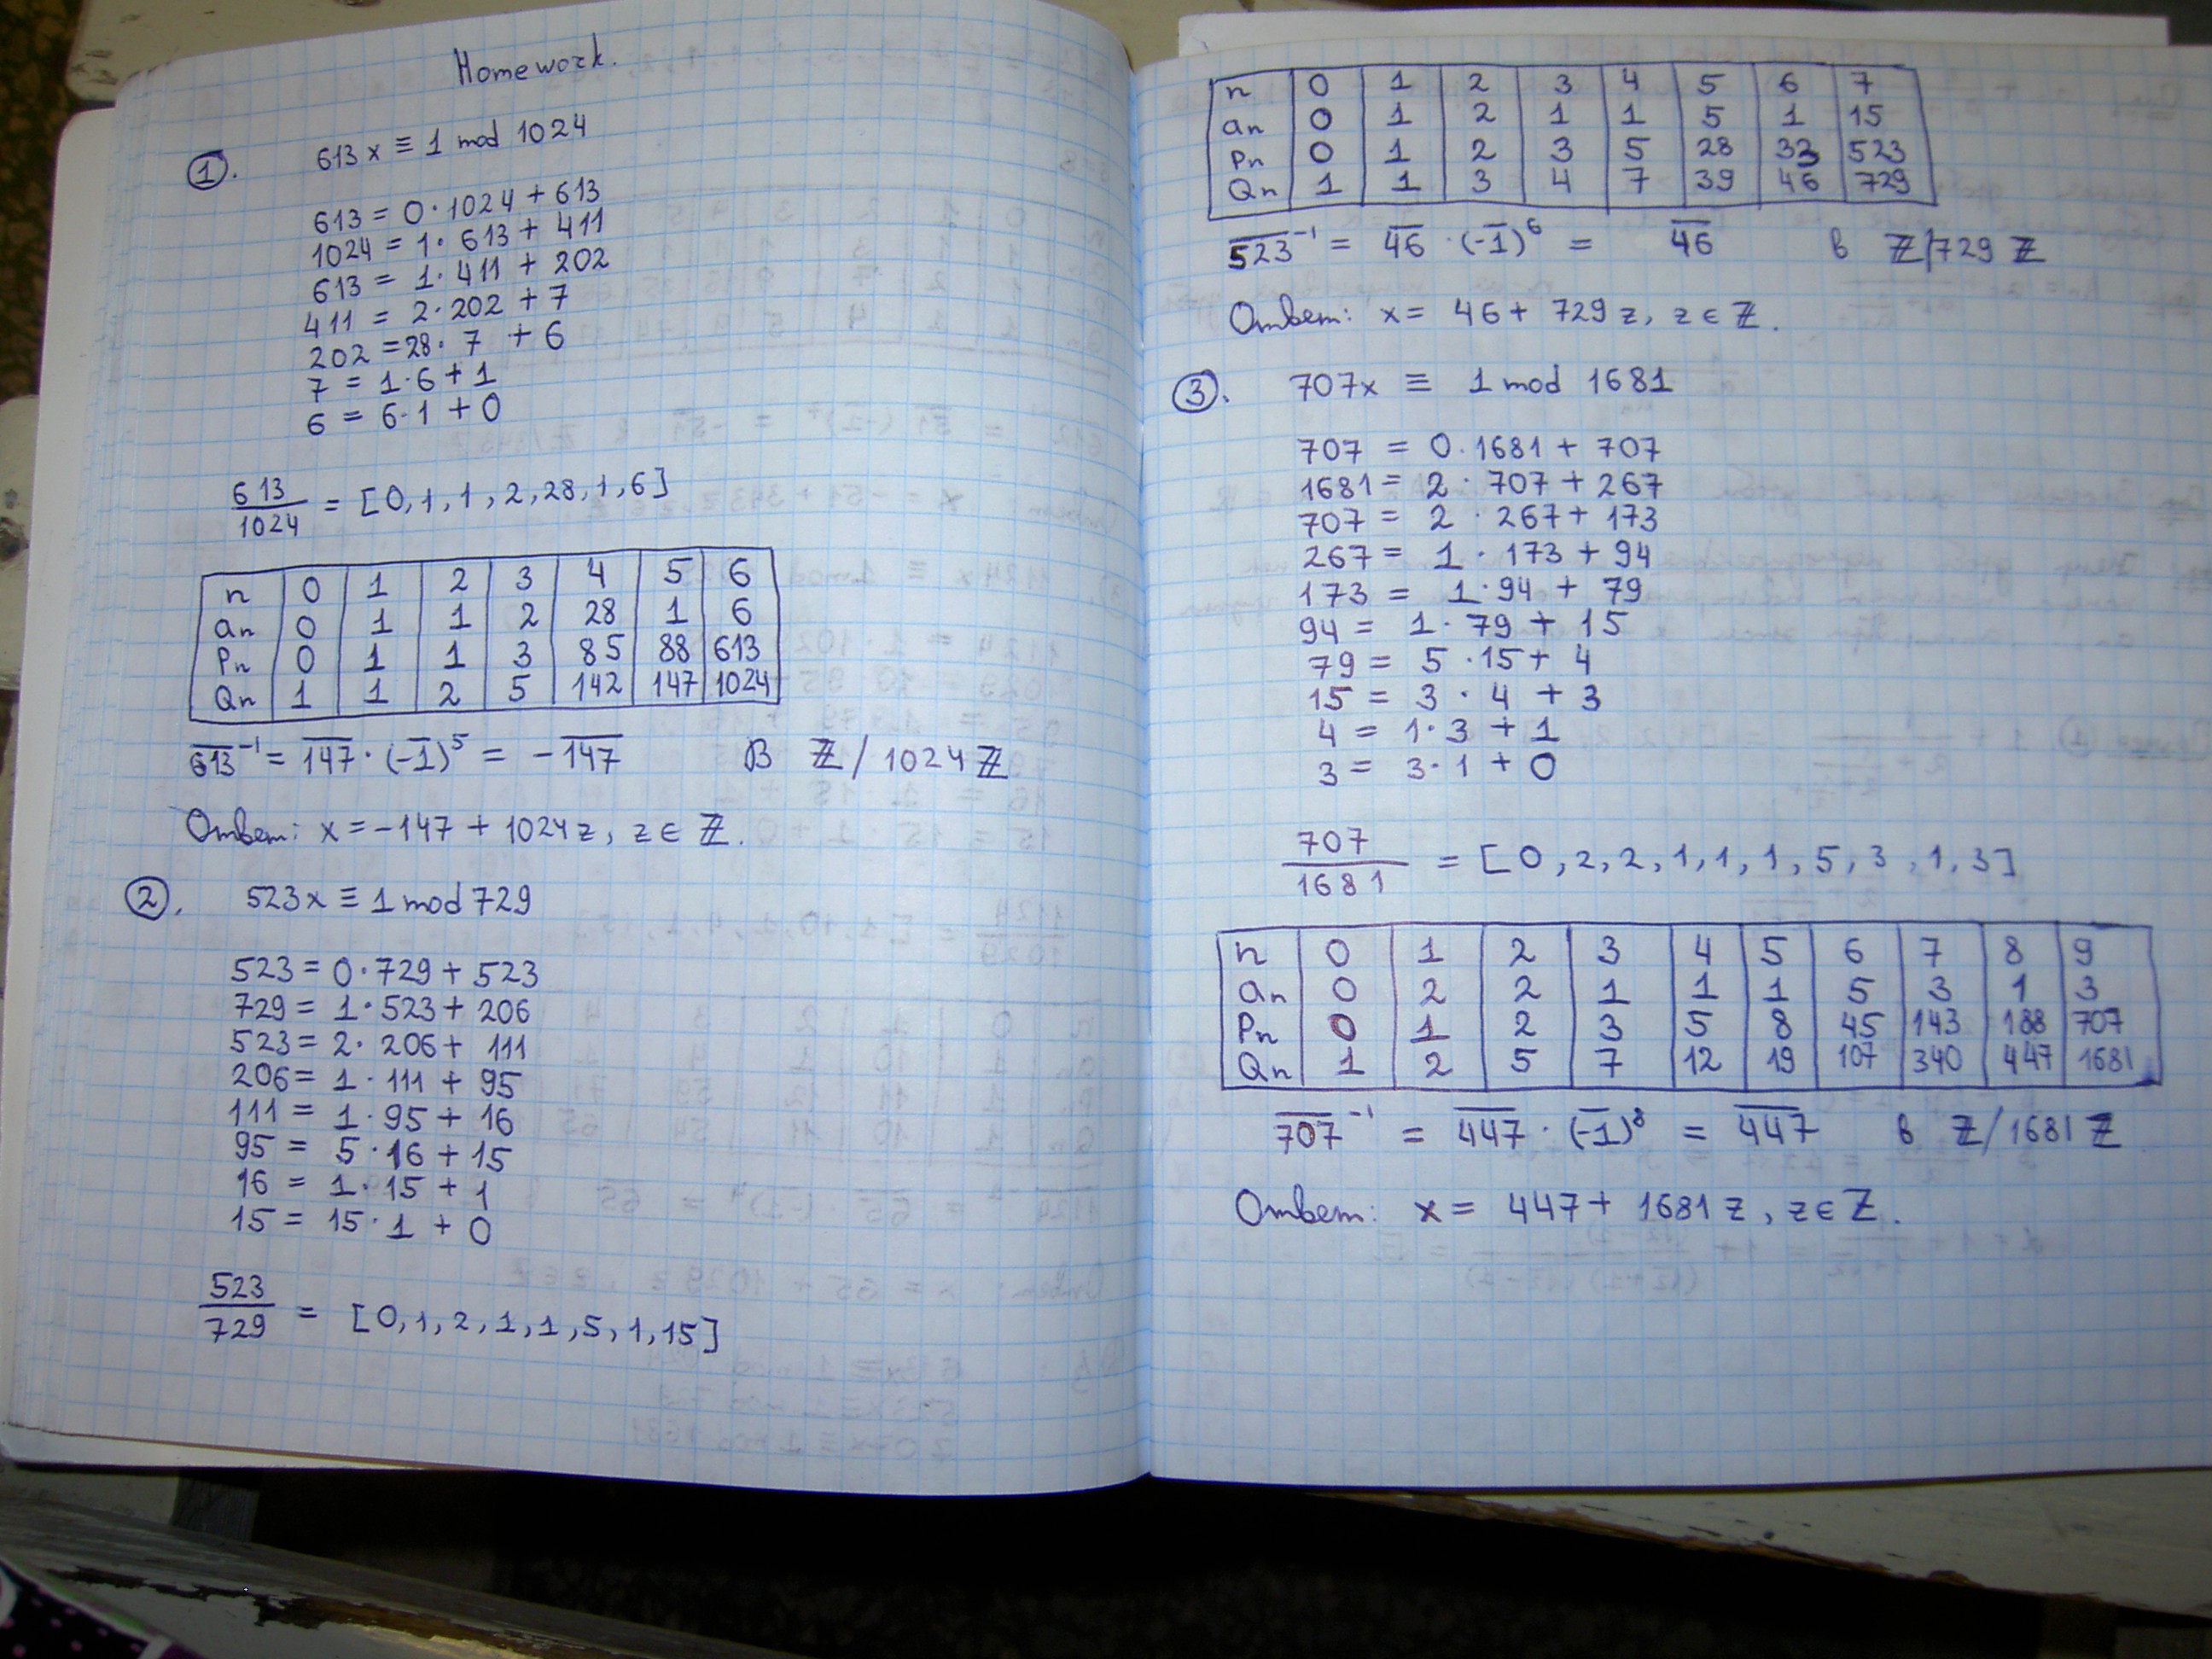 Homework.
①. 613x ≡ 1 mod 1024
613 = 0·1024 + 613
1024 = 1·613 + 411
613 = 1·411 + 202
411 = 2·202 + 7
202 = 28·7 + 6
7 = 1·6 + 1
6 = 6·1 + 0
613/1024 = [0, 1, 1, 2, 28, 1, 6]
n 0 1 2 3 4 5 6
an 0 1 1 2 28 1 6
Pn 0 1 1 3 85 88 613
Qn 1 1 2 5 142 147 1024
6̅1̅3̅⁻¹ = 1̅4̅7̅ · (-1̅)⁵ = -1̅4̅7̅ В ℤ/1024ℤ
Ответ: x = -147 + 1024z, z ∈ ℤ.
②. 523x ≡ 1 mod 729
523 = 0·729 + 523
729 = 1·523 + 206
523 = 2·206 + 111
206 = 1·111 + 95
111 = 1·95 + 16
95 = 5·16 + 15
16 = 1·15 + 1
15 = 15·1 + 0
523/729 = [0, 1, 2, 1, 1, 5, 1, 15]
n 0 1 2 3 4 5 6 7
an 0 1 2 1 1 5 1 15
Pn 0 1 2 3 5 28 33 523
Qn 1 1 3 4 7 39 46 729
5̅2̅3̅⁻¹ = 4̅6̅ · (-1̅)⁶ = 4̅6̅ в ℤ/729ℤ
Ответ: x = 46 + 729z, z ∈ ℤ.
③. 707x ≡ 1 mod 1681
707 = 0·1681 + 707
1681 = 2·707 + 267
707 = 2·267 + 173
267 = 1·173 + 94
173 = 1·94 + 79
94 = 1·79 + 15
79 = 5·15 + 4
15 = 3·4 + 3
4 = 1·3 + 1
3 = 3·1 + 0
707/1681 = [0, 2, 2, 1, 1, 1, 5, 3, 1, 3]
n 0 1 2 3 4 5 6 7 8 9
an 0 2 2 1 1 1 5 3 1 3
Pn 0 1 2 3 5 8 45 143 188 707
Qn 1 2 5 7 12 19 107 340 447 1681
7̅0̅7̅⁻¹ = 4̅4̅7̅ · (-1̅)⁸ = 4̅4̅7̅ в ℤ/1681ℤ
Ответ: x = 447 + 1681z, z ∈ ℤ.